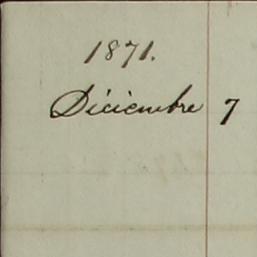 1871.
Diciembre 7